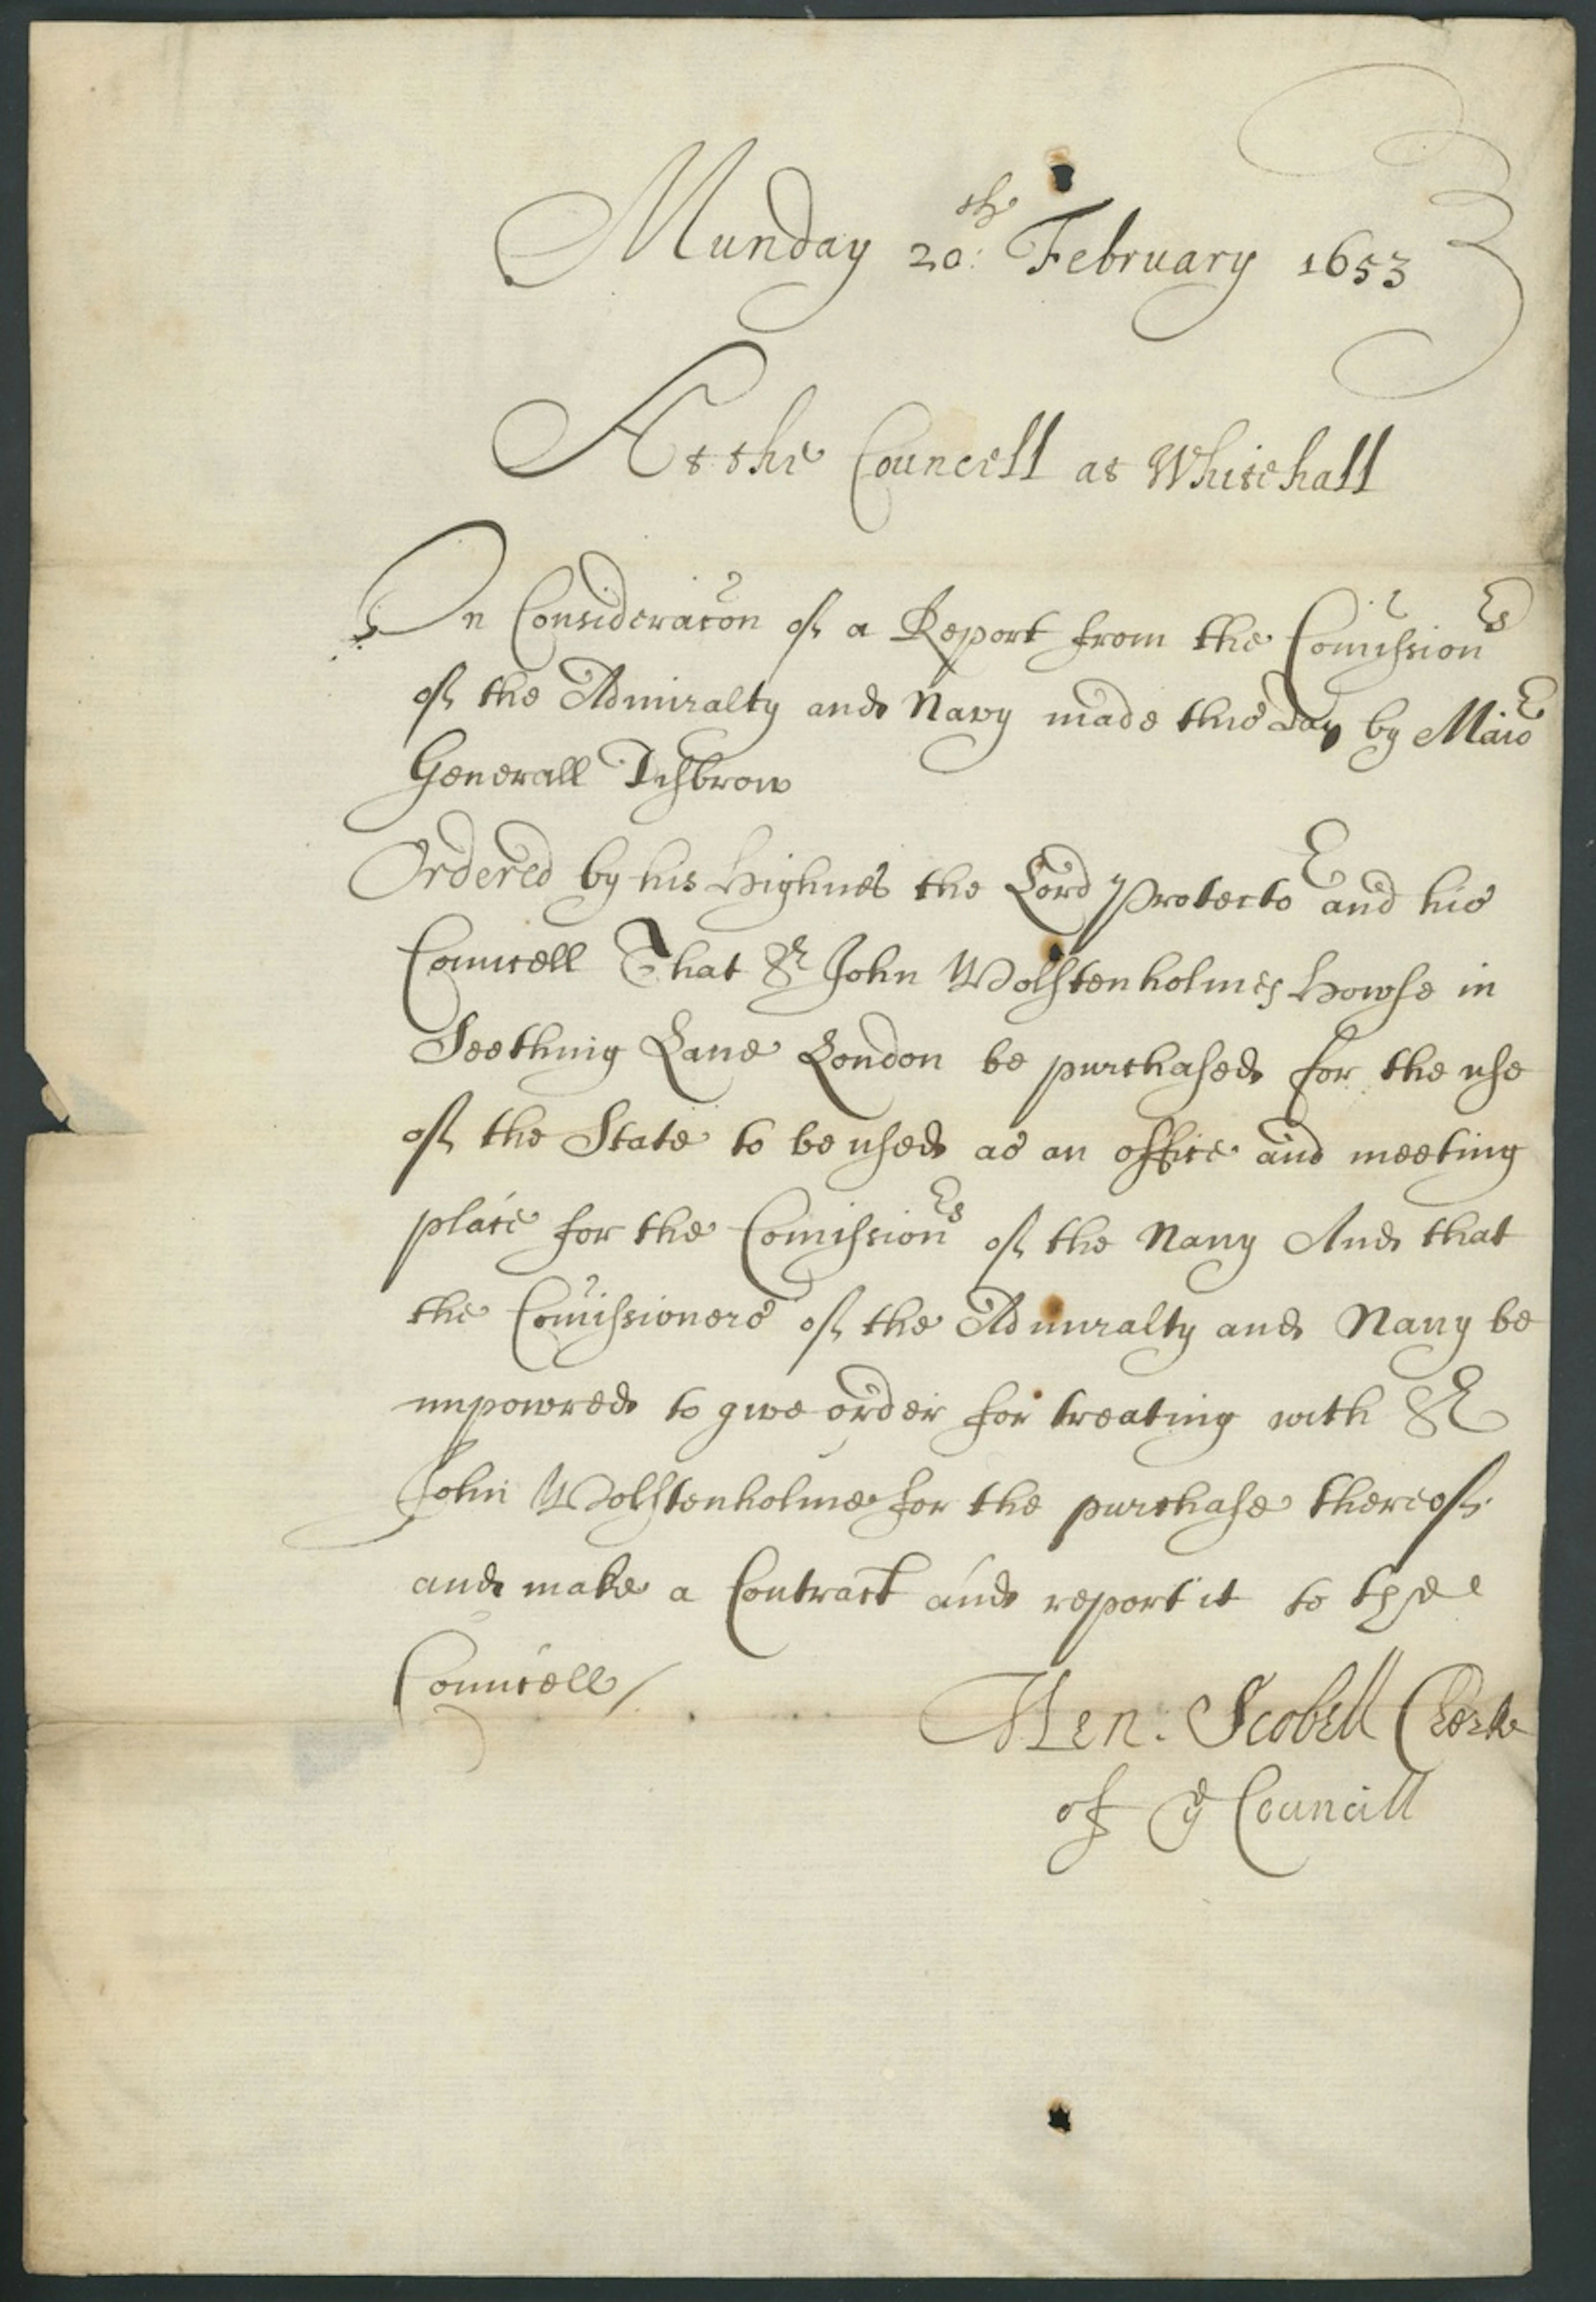 Munday 20th: February 1653
At the Councell at Whitehall
On Consideracon of a Report from the Comissionrs
of the Admiralty and Navy made this day by Maior
Generall Disbrow
Ordered by his Highnes the Lord Protector and his
Councell That Sr John Wolstenholmes Howse in
Seething Lane London be purchased for the use
of the State to be used as an office and meeting
place for the Comissionrs of the Navy And that
the Comissioners of the Admiralty and Navy be
impowred to give order for treating with Sr
John Wolstenholme for the purchase thereof
and make a Contract and report it to the
Councell /
Hen: Scobell Clerke
of ye Councill